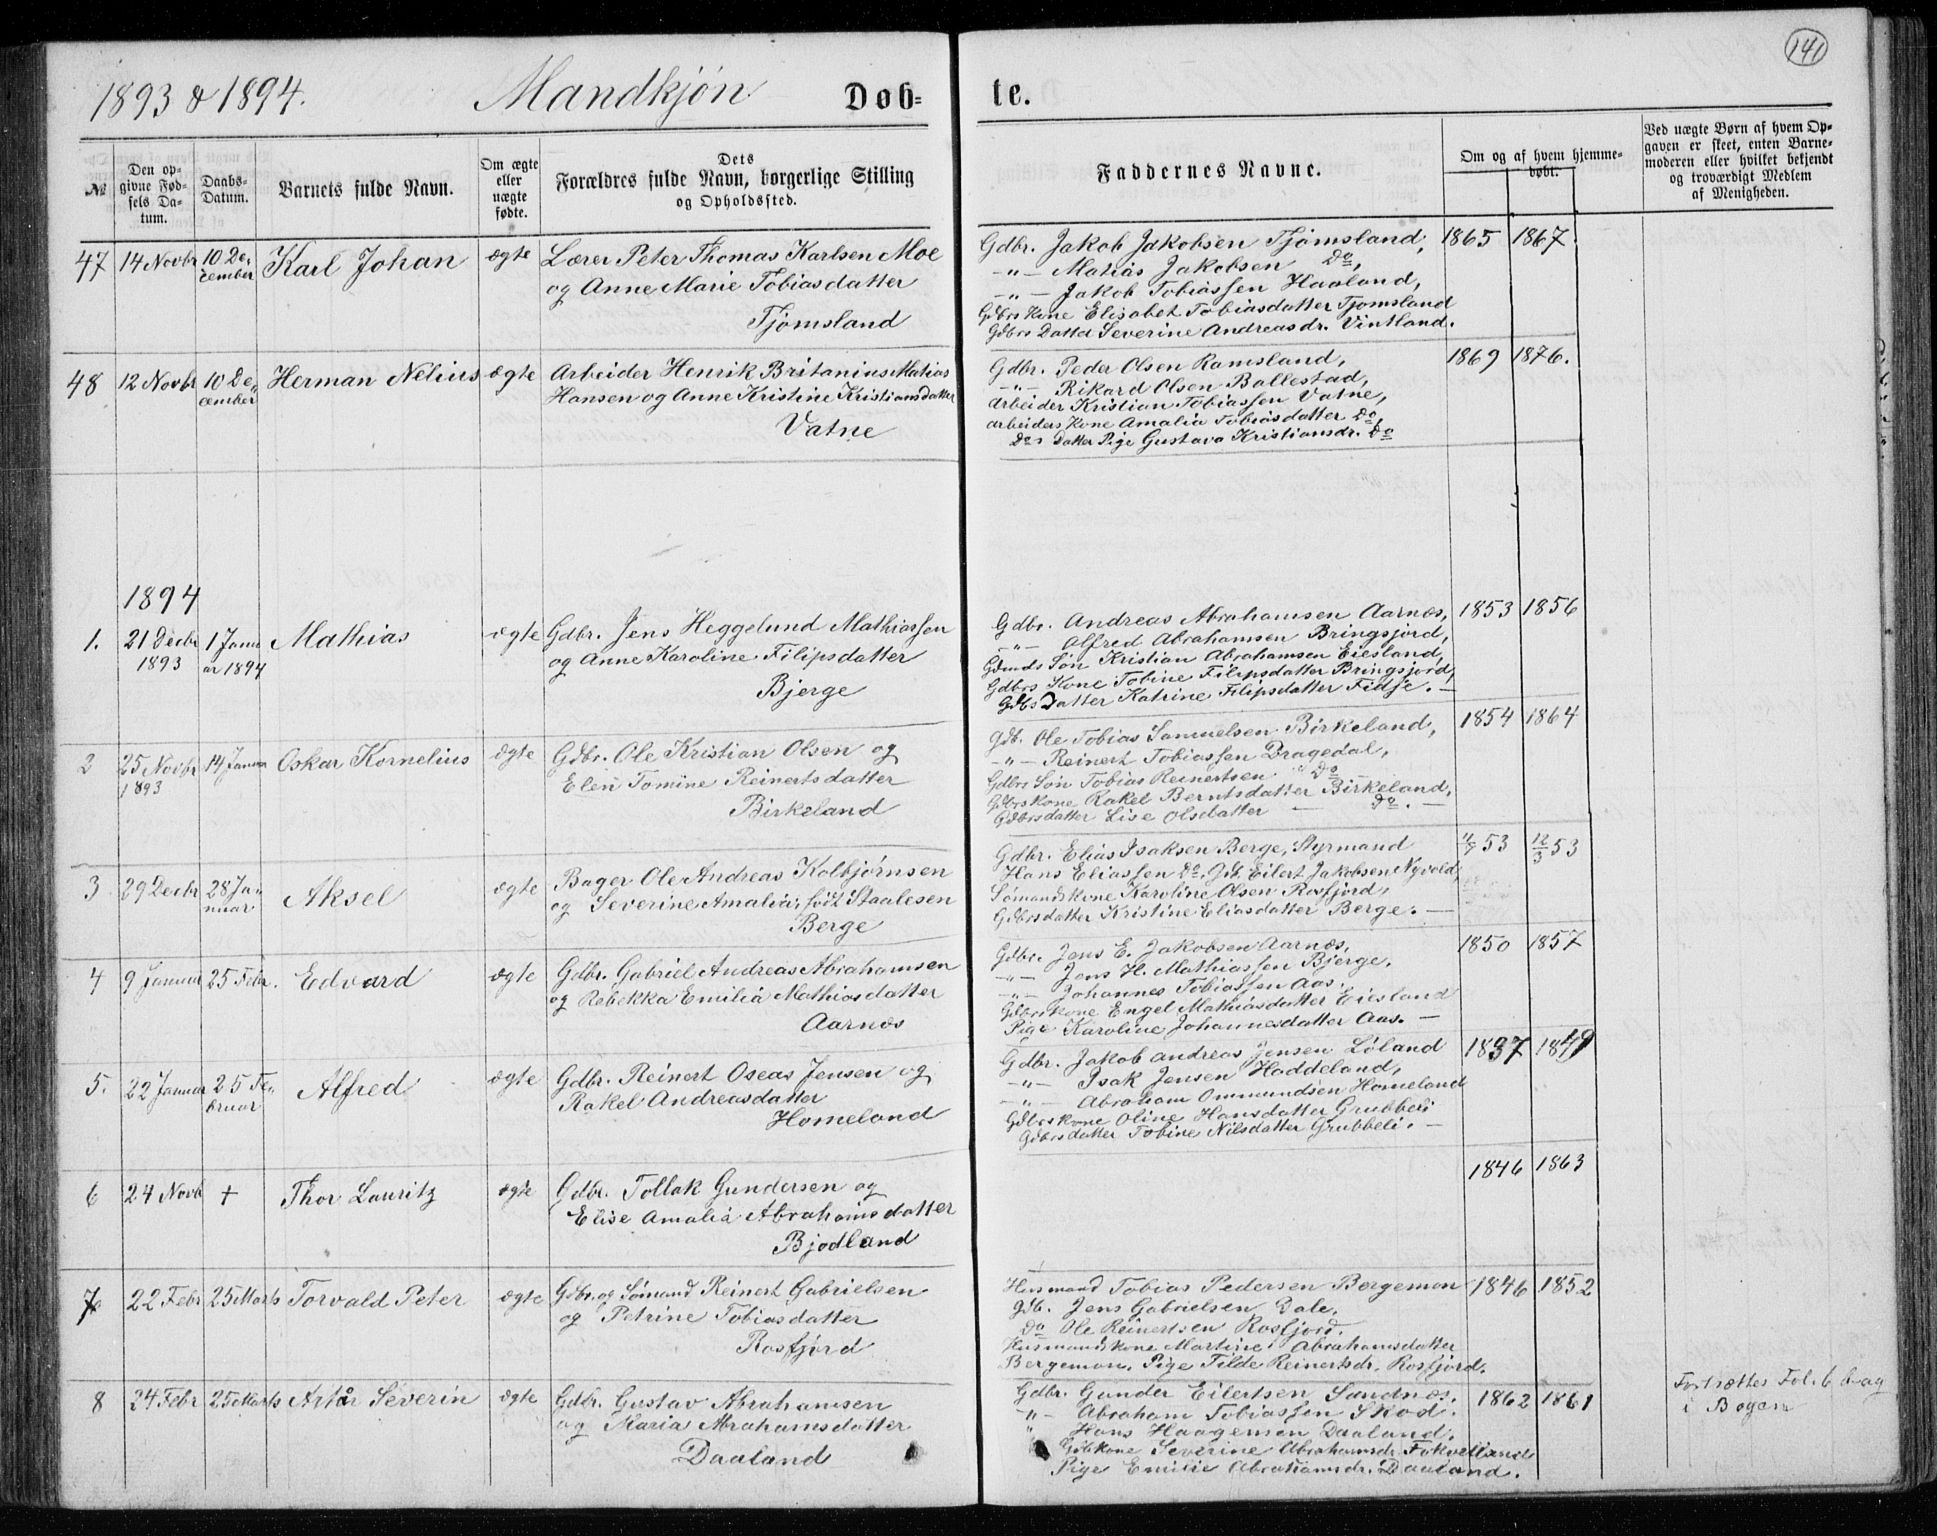 141
1893 & 1894. Mandkjøn Døb= te.
№
Den op-
givne Fød-
sels Da-
tum.
Daabs-
Datum.
Barnets fulde Navn.
Om ægte
eller
uægte
fødte.
Dets
Forældres fulde Navn, borgerlige Stilling
og Opholdssted.
Faddernes Navne.
Om og af hvem hjemme-
døbt.
Ved uægte Børn af hvem Op-
gaven er skeet, enten Barne-
moderen eller hvilket bekjendt
og troværdigt Medlem
af Menigheden.
47 14 Novbr 10 De-
cember
Karl Johan ægte
Lærer Peter Thomas Karlsen Moe
og Anne Marie Tobiasdatter
Tjømsland
Gdbr. Jakob Jakobsen Tjømsland,
-"- Matias Jakobsen Do,
-"- Jakob Tobiassen Haaland,
Gdbrs Kone Elisabet Tobiasdatter Tjomsland
Gdbrs Datter Severine Andreasdr. Vintland.
1865 1867.
48 12 Novbr 10 De-
cember
Herman Nelius ægte
Arbeider Henrik Britanius Matias
Hansen og Anne Kristine Kristiansdatter
Vatne
Gdbr. Peder Olsen Ramsland,
-"- Rikard Olsen Ballestad,
Arbeider Kristian Tobiassen Vatne,
arbeiders Kone Amalia Tobiasdatter Do,
Dos Datter Pige Gustava Kristiansdr. Do
1869 1876.
1894
1. 21 Decbr
1893
1 Janu
ar 1894
Mathias ægte
Gdbr. Jens Heggelund Mathiassen
og Anne Karoline Filipsdatter
Bjerge
Gdbr. Andreas Abrahamsen Aarnæs,
-"- Alfred Abrahamsen Bringsjord,
Gdmds Søn Kristian Abrahamsen Eiesland,
Gdbrs Kone Tobine Filipsdatter Bringsjord,
Gdbs Datter Katrine Filipsdatter Fidje. -
1853 1856
2 25 Novbr
1893
14 Januar
Oskar Kornelius ægte
Gdbr. Ole Kristian Olsen og
Elen Tomine Reinertsdatter
Birkeland
Gdb. Ole Tobias Samuelsen Birkeland,
-"- Reinert Tobiassen Dragedal,
Gdbrs Søn Tobias Reinertsen " Do
Gdbrskone Rakel Berntsdatter Birkeland,
Gdbrsdatter Lise Olsdatter - Do. -
1854 1864
3 29 Decbr 28 Ja-
nuar
Aksel ægte
Bager Ole Andreas Kolbjørnsen
og Severine Amalia, født Staalesen
Berge
Gdbr. Elias Isaksen Berge, Styrmand
Hans Eliassen Do, Gdb. Eilert Jakobsen Nyvold,
Sømandskone Karoline Olsen Rosfjord,
Gdbrsdatter Kristine Eliasdatter Berge. -
53 12/3 53
4 9 Januar 25 Febr.
Edvard ægte
Gdbr. Gabriel Andreas Abrahamsen
og Rebekka Emilia Mathiasdatter
Aarnæs
Gdbr. Jens E. Jakobsen Aarnæs,
-"- Jens H. Mathiassen Bjerge,
-"- Johannes Tobiassen Aas,
Gdbrskone Engel Mathiasdatter Eiesland
Pige Karoline Johannesdatter Aas. -
1850 1857
5. 22 Januar 25 Fe-
bruar
Alfred ægte
Gdbr. Reinert Oseas Jensen og
Rakel Andreasdatter
Homeland
Gdbr. Jakob Andreas Jensen Løland
-"- Isak Jensen Haddeland,
-"- Abraham Ommundsen Homeland
Gdbrskone Oline Hansdatter Grubbeli
Gdbrsdatter Tobine Nilsdatter Grubbeli. -
1837 1849
6 24 Novb +
Thor Lauritz ægte
Gdbr. Tollak Gundersen og
Elise Amalia Abrahamsdatter
Bjodland
1846 1863
7 22 Febr 25 Marts
Torvald Peter ægte
Gdbr. og Sømand Reinert Gabrielsen
og Petrine Tobiasdatter
Rosfjord
Husmand Tobias Pedersen Bergemon
Gdb. Jens Gabrielsen Dale,
Do Ole Reinertsen Rosfjord.
Husmandskone Martine Abrahamsdatter
Bergemon, Pige Tilde Reinertsdr. Rosfjord.
1846 1852
8 24 Febr 25 Marts
Artur Severin ægte
Gdbr. Gustav Abrahamsen
og Maria Abrahamsdatter
Daaland
Gdbr. Gunder Eilertsen Sandnæs.
"- Abraham Tobiassen Skod.
" Hans Haagensen Daaland.
Gdbkone Severine Abrahamsdr. Fokvelland
Pige Emilie Abrahamsdr. Daaland.
1862 1861
Fortsættes Fol. 6 bag
i Bogen